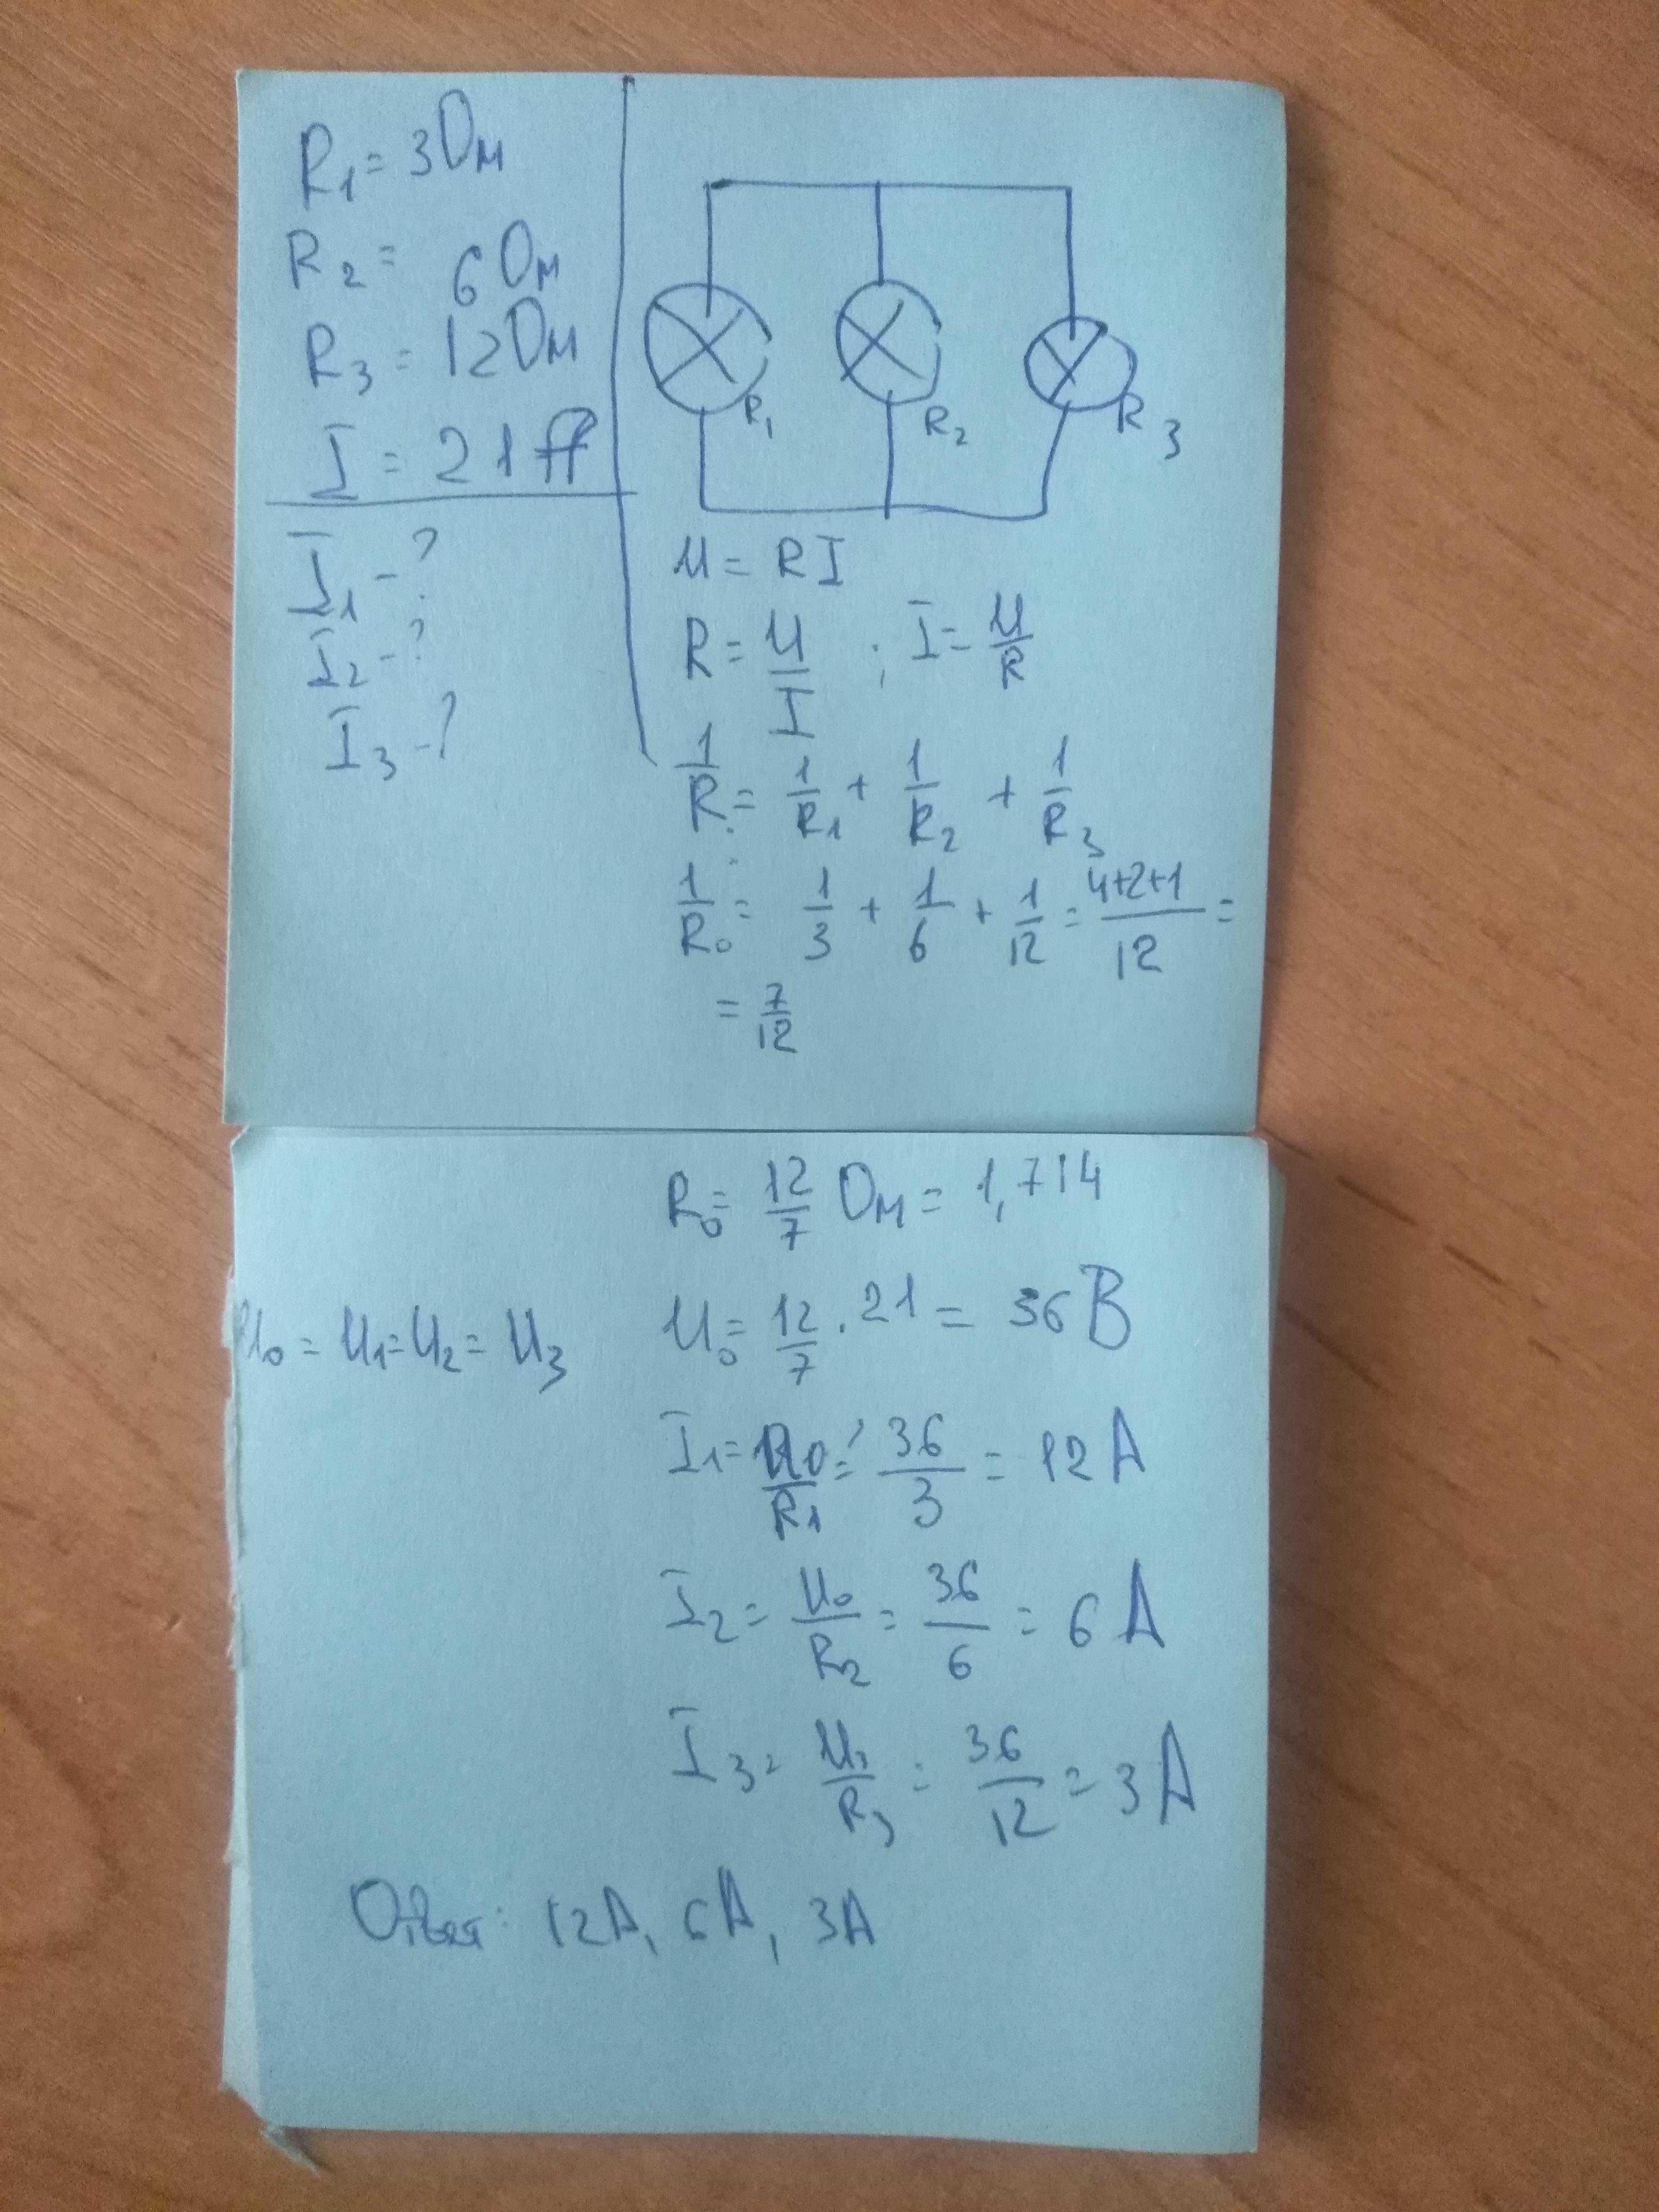 R₁ = 3 Ом
R₂ = 6 Ом
R₃ = 12 Ом
I = 21 A
I₁ - ?
I₂ - ?
I₃ - ?
R₁
R₂
R₃
U = RI
R = U/I ; I = U/R
1/R = 1/R₁ + 1/R₂ + 1/R₃
1/R₀ = 1/3 + 1/6 + 1/12 = 4+2+1/12 =
= 7/12
R₀ = 12/7 Ом = 1,714
U₀ = U₁ = U₂ = U₃
U₀ = 12/7 · 21 = 36 В
I₁ = U₀/R₁ = 36/3 = 12 A
I₂ = U₀/R₂ = 36/6 = 6 A
I₃ = U₃/R₃ = 36/12 = 3 A
Ответ: 12A, 6A, 3A